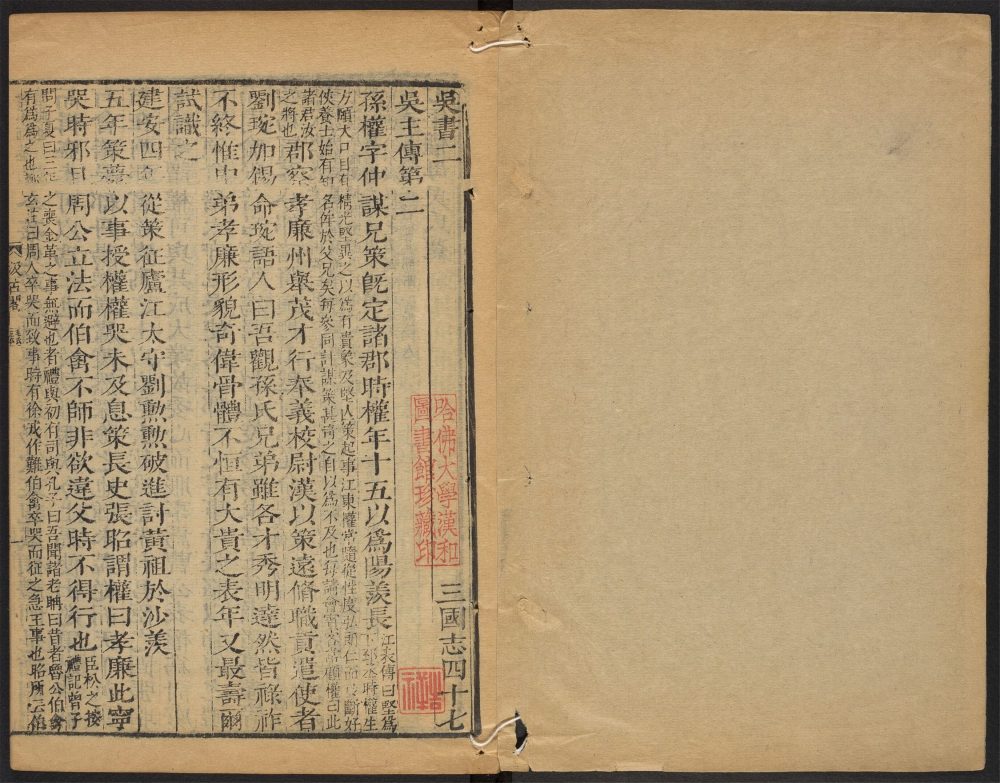 吳書二
三國志四十七
吳主傳第二
孫權字仲謀兄策旣定諸郡時權年十五以爲陽羨長
江表傳曰堅爲
下邳丞時權生
方頤大口目有精光堅異之以爲有貴象及堅亡策起事江東權常隨從性度弘朗仁而多斷好
俠養士始有知名侔於父兄矣每參同計謀策甚奇之自以爲不及也每請會賓客常顧權曰此
諸君汝
之將也
郡察孝廉州舉茂才行奉義校尉漢以策遠脩職貢遣使者
劉琬加錫命琬語人曰吾觀孫氏兄弟雖各才秀明達然皆祿祚
不終惟中弟孝廉形貌奇偉骨體不恒有大貴之表年又最壽爾
試識之
建安四年從策征廬江太守劉勳勳破進討黃祖於沙羨
五年策薨以事授權權哭未及息策長史張昭謂權曰孝廉此寧
哭時邪且周公立法而伯禽不師非欲違父時不得行也
臣松之按
禮記曾子
問子夏曰三年之喪金革之事無避也者禮與初有司與孔子曰吾聞諸老聃曰昔者魯公伯禽
有爲爲之也鄭玄注曰周人卒哭而致事時有徐戎作難伯禽卒哭而征之急王事也昭所云伯
汲古閣
哈佛大學漢和
圖書館珍藏印